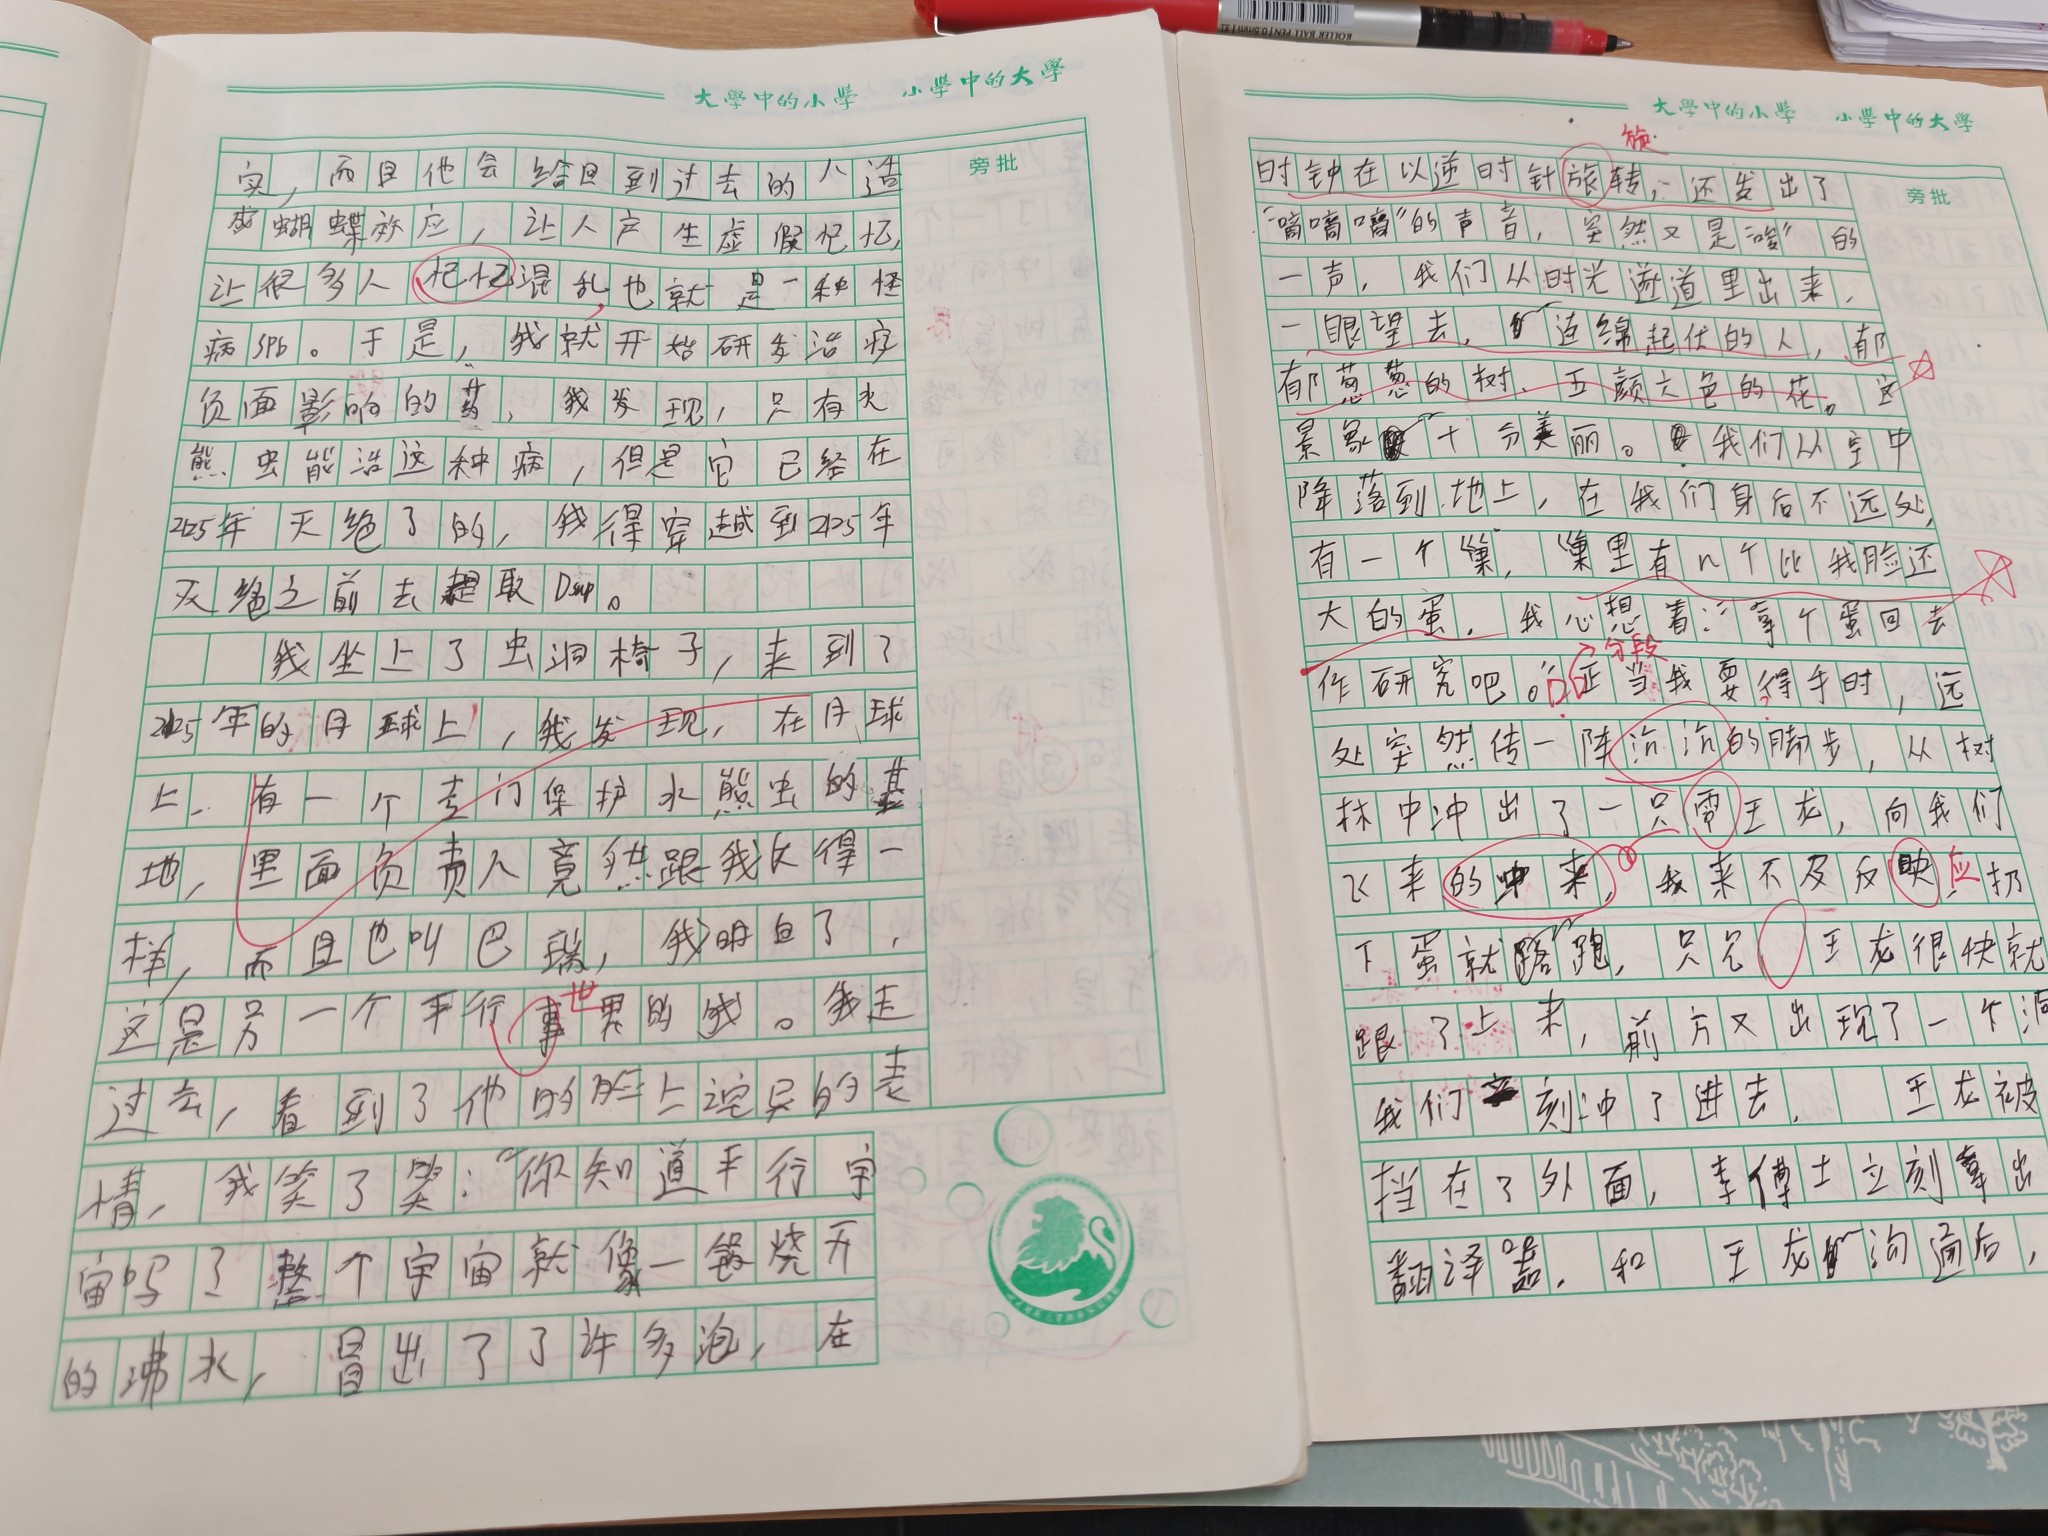 大學中的小學 小學中的大學
旁批
实，而且他会给回到过去的人造
成蝴蝶效应，让人产生虚假记忆，
让很多人记忆混乱，也就是一种怪
病SPb。于是，我就开始研发治疗
负面影响的药，我发现，只有水
熊虫能治这种病，但是它已经在
2125年灭绝了的，我得穿越到2125年
灭绝之前去提取Dsup。
我坐上了虫洞椅子，来到了
2125年的月球上，我发现，在月球
上，有一个专门保护水熊虫的基
地，里面负责人竟然跟我长得一
样，而且也叫巴瑞，我明白了，
这是另一个平行事界的我。我走
世
过去，看到了他的脸上诧异的表
情，我笑了笑：“你知道平行宇
宙吗？整个宇宙就像一锅烧开
的沸水，冒出了了许多泡，在
大學中的小學 小學中的大學
旁批
旋
时钟在以逆时针旅转，还发出了
“嘀嘀嘀”的声音，突然又是“的
一声，我们从时光遂道里出来，
一眼望去，连绵起伏的人，郁
郁葱葱的树、五颜六色的花。这
景象十分美丽。我们从空中
降落到地上，在我们身后不远处，
有一个巢，巢里有n个比我脸还
大的蛋，我心想着：“拿个蛋回去
分段
作研究吧。”正当我要得手时，远
处突然传一阵沉沉的脚步，从树
林中冲出了一只霸王龙，向我们
飞来的冲来，我来不及反映应扔
下蛋就跑，只见 王龙很快就
跟了上来，前方又出现了一个洞
我们立刻冲了进去， 王龙被
挡在了外面，李傅士立刻拿出
翻译器，和 王龙沟通后，
ROLLER BALL PEN | 0.5mm | 红